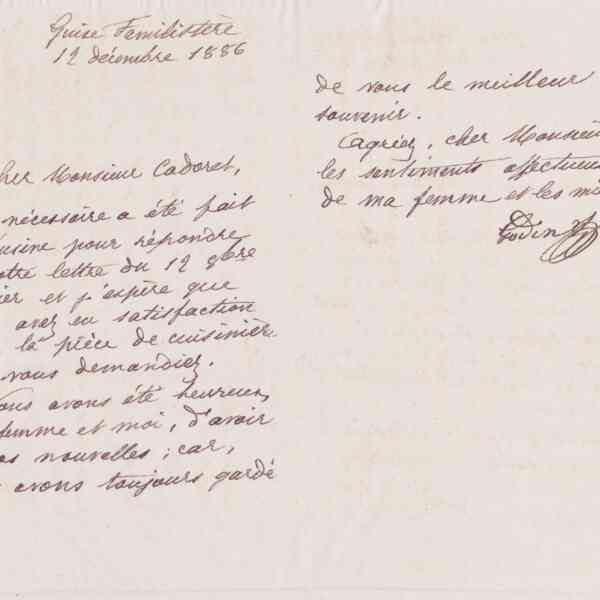 Guise Familistère
12 décembre 1886
cher Monsieur Cadoret,
nécessaire a été fait
usine pour répondre
otre lettre du 12 9bre
ier et j'espère que
avez eu satisfaction
la pièce de cuisinière
vous demandiez.
ous avons été heureux,
femme et moi, d'avoir
os nouvelles ; car,
avons toujours gardé
de vous le meilleur
souvenir.
Agréez, cher Monsieu
les sentiments affectueu
de ma femme et les mi
Godin